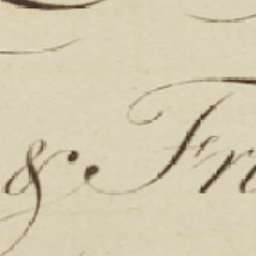 & Fr